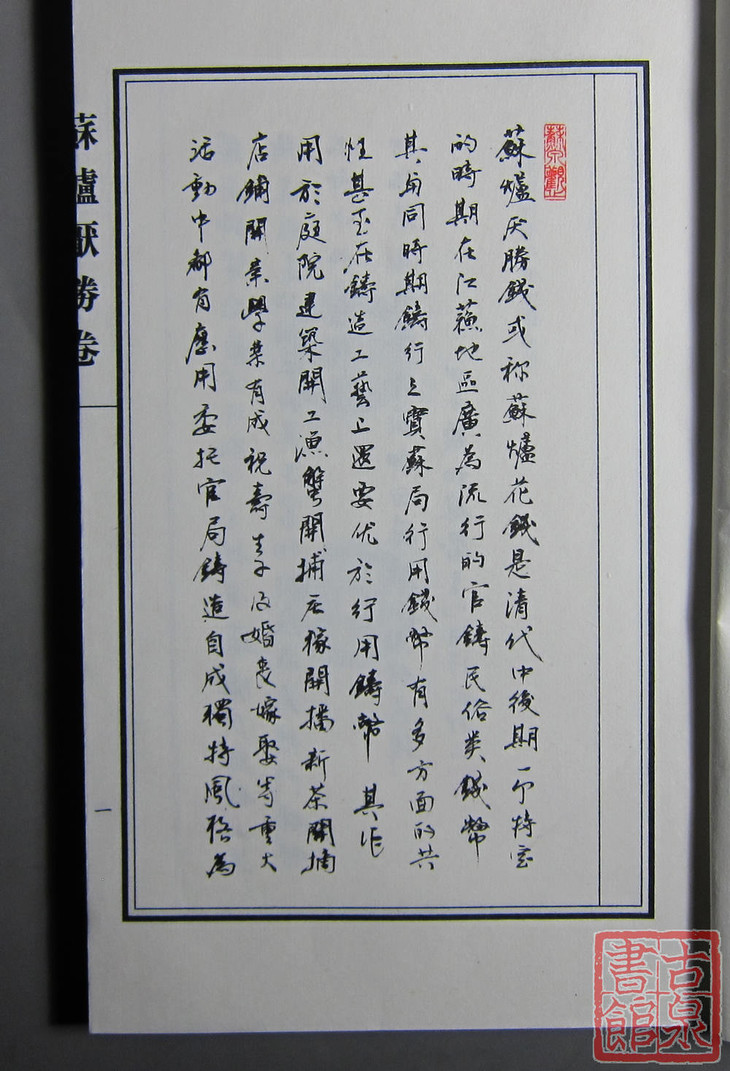 蘇爐厌勝錢或称蘇爐花錢是清代中後期一个特定
的時期在江蘇地區廣為流行的官鑄民俗类錢幣
其与同時期鑄行之寶蘇局行用錢幣有多方面的共
性甚至在鑄造工藝上還要优於行用鑄幣其作
用於庭院建築開工漁蟹開捕庄稼開播新茶開摘
店鋪開業學業有成祝壽生子及婚喪嫁娶等重大
活動中都有應用委托官局鑄造自成獨特風格為
蘇爐厭勝卷
一
古泉書館